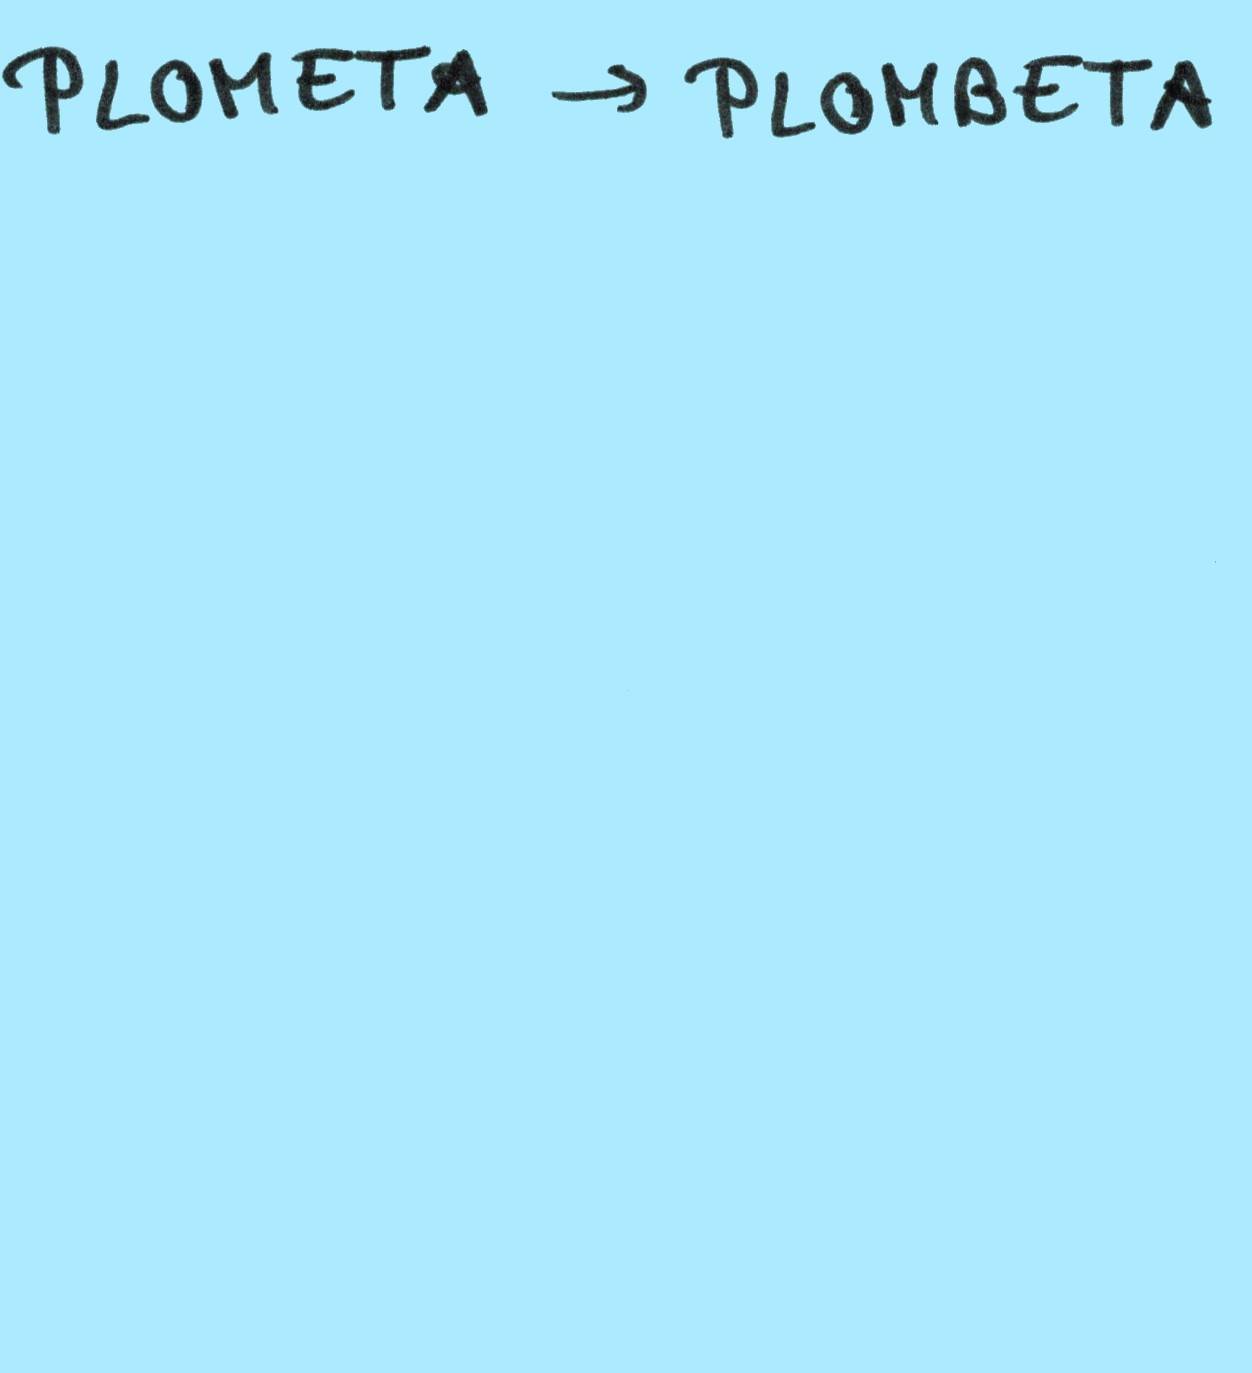 PLOMETA → PLOMBETA